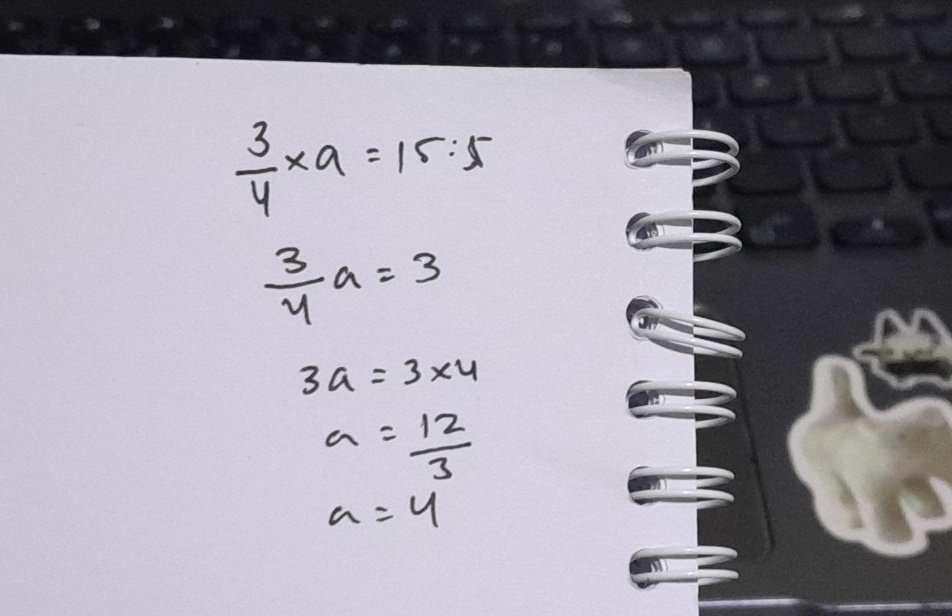 3/4 × a = 15 : 5
3/4 a = 3
3a = 3 × 4
a = 12/3
a = 4